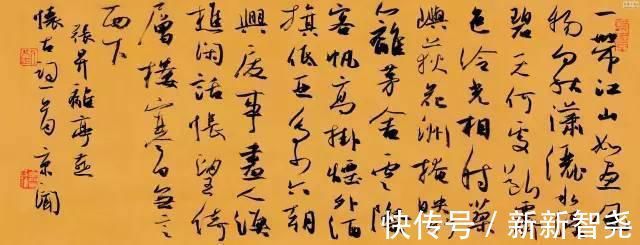 一帶江山如畫風
物向秋瀟灑水浸
碧天何處斷霽
色冷光相射蓼
嶼荻花洲掩映
竹籬茅舍雲際
客帆高掛煙外酒
旗低亞多少六朝
興廢事盡入漁
樵閑話悵望倚
層樓寒日無言
西下
張昇離亭燕
懷古詞一首 京聞
快传号／新新智尧